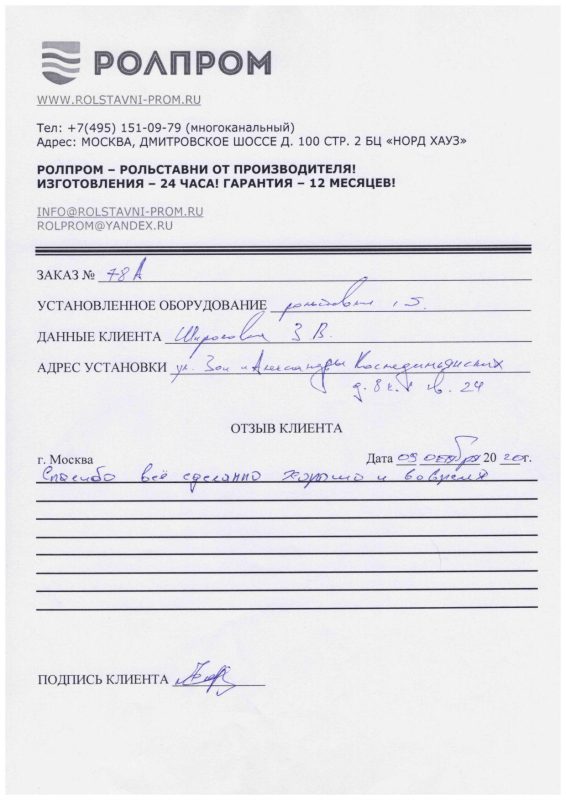 РОЛПРОМ
WWW.ROLSTAVNI-PROM.RU
Тел: +7(495) 151-09-79 (многоканальный)
Адрес: МОСКВА, ДМИТРОВСКОЕ ШОССЕ Д. 100 СТР. 2 БЦ «НОРД ХАУЗ»
РОЛПРОМ – РОЛЬСТАВНИ ОТ ПРОИЗВОДИТЕЛЯ!
ИЗГОТОВЛЕНИЯ – 24 ЧАСА! ГАРАНТИЯ – 12 МЕСЯЦЕВ!
INFO@ROLSTAVNI-PROM.RU
ROLPROM@YANDEX.RU
ЗАКАЗ № 78А
УСТАНОВЛЕННОЕ ОБОРУДОВАНИЕ
ДАННЫЕ КЛИЕНТА З В.
АДРЕС УСТАНОВКИ ул. Зои и Александра Космодемьянских
кв. 24
ОТЗЫВ КЛИЕНТА
г. Москва Дата 09 октября 2020г.
Спасибо всё сделанно хорошо и вовремя
ПОДПИСЬ КЛИЕНТА